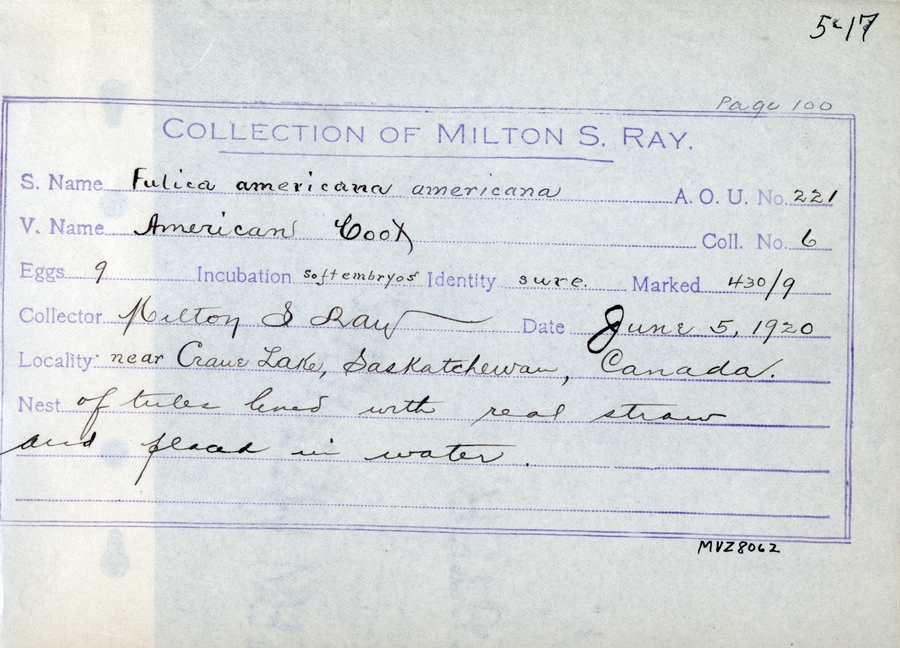 5-17
Page 100
COLLECTION OF MILTON S. RAY.
S. Name Fulica americana americana A. O. U. No. 221
V. Name American Coot Coll. No. 6
Eggs 9 Incubation soft embryos Identity sure. Marked 430/9
Collector Milton S Ray Date June 5, 1920
Locality near Crane Lake, Saskatchewan, Canada.
Nest of tules lined with real straw
and placed in water.
MVZ8062